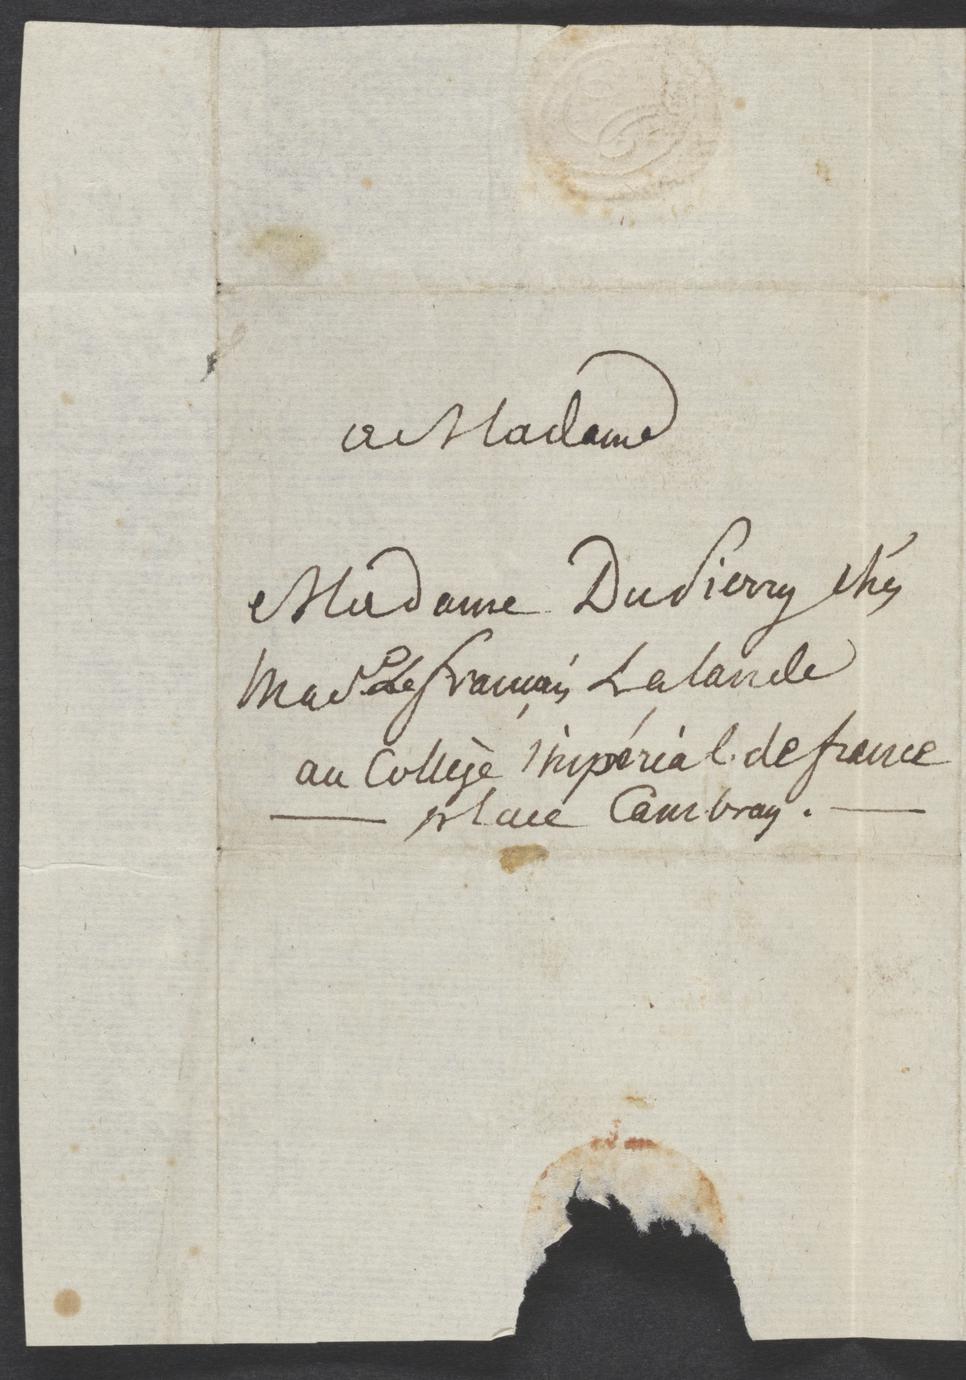 a Madame
Madame Dupierry chés
Mad.e Le français Lalande
au Collège impérial de france
— place Cambray. —